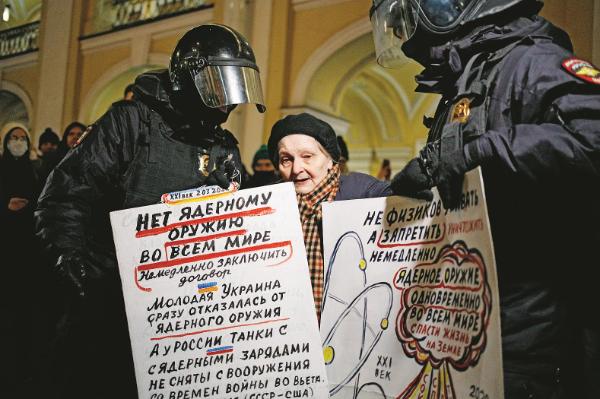 XXI ВЕК
НЕТ ЯДЕРНОМУ
ОРУЖИЮ
ВО ВСЕМ МИРЕ
НЕМЕДЛЕННО ЗАКЛЮЧИТЬ
ДОГОВОР
МОЛОДАЯ УКРАИНА
СРАЗУ ОТКАЗАЛАСЬ ОТ
ЯДЕРНОГО ОРУЖИЯ
А У РОССИИ ТАНКИ С
ЯДЕРНЫМИ ЗАРЯДАМИ
НЕ СНЯТЫ С ВООРУЖЕНИЯ
СО ВРЕМЕН ВОЙНЫ ВО ВЬЕТ
(СССР-США)
НЕ ФИЗИКОВ
А ЗАПРЕТИТЬ УНИЧТОЖИТЬ
НЕМЕДЛЕННО
ЯДЕРНОЕ ОРУЖИЕ
ОДНОВРЕМЕННО
ВО ВСЕМ МИРЕ
СПАСТИ ЖИЗНЬ
НА ЗЕМЛЕ
XXI
ВЕК